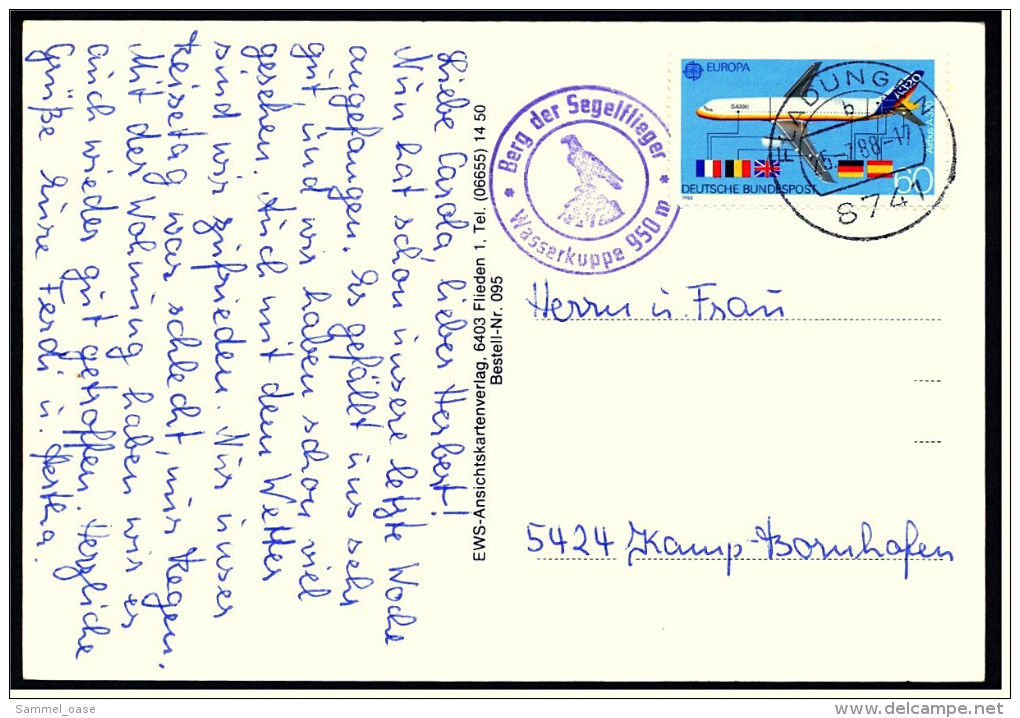 Liebe Carola, lieber Herbert!
Nun hat schon unsere letzte Woche
angefangen. Es gefällt uns sehr
gut und wir haben schon viel
gesehen. Auch mit dem Wetter
sind wir zufrieden. Nur unser
Reisetag war schlecht, nur Regen.
Mit der Wohnung haben wir es
auch wieder gut getroffen. Herzliche
Grüße Eure Ferdi u. Hertha.
EWS-Ansichtskartenverlag, 6403 Flieden 1, Tel. (06655) 14 50
Bestell-Nr. 095
* Berg der Segelflieger *
Wasserkuppe 950 m
EUROPA
SA320
A320
Airbus A320
DEUTSCHE BUNDESPOST
60
1988
FLADUNGEN
b
88-17
8741
Herrn u. Frau
5424 Kamp-Bornhofen
Sammel_oase
www.delcampe.net